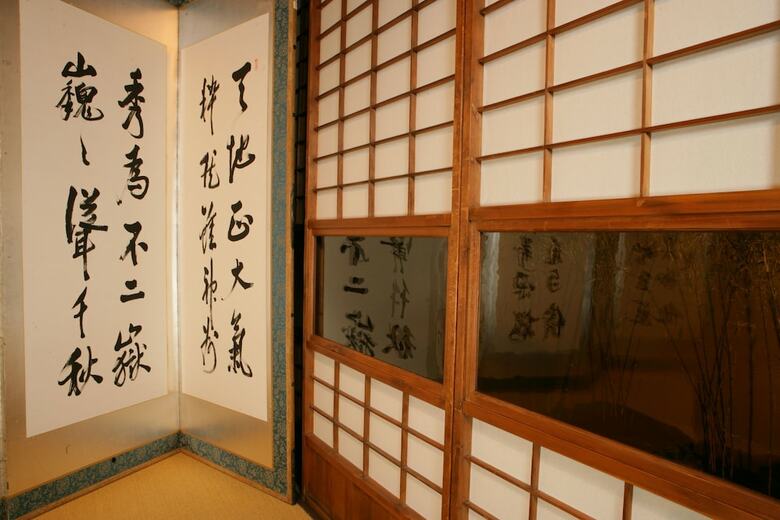 天地正大氣
粹然鍾神州
秀為不二嶽
巍々聳千秋